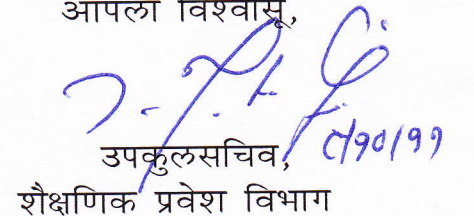 आपला विश्वासू,
उपकुलसचिव,
शैक्षणिक प्रवेश विभाग